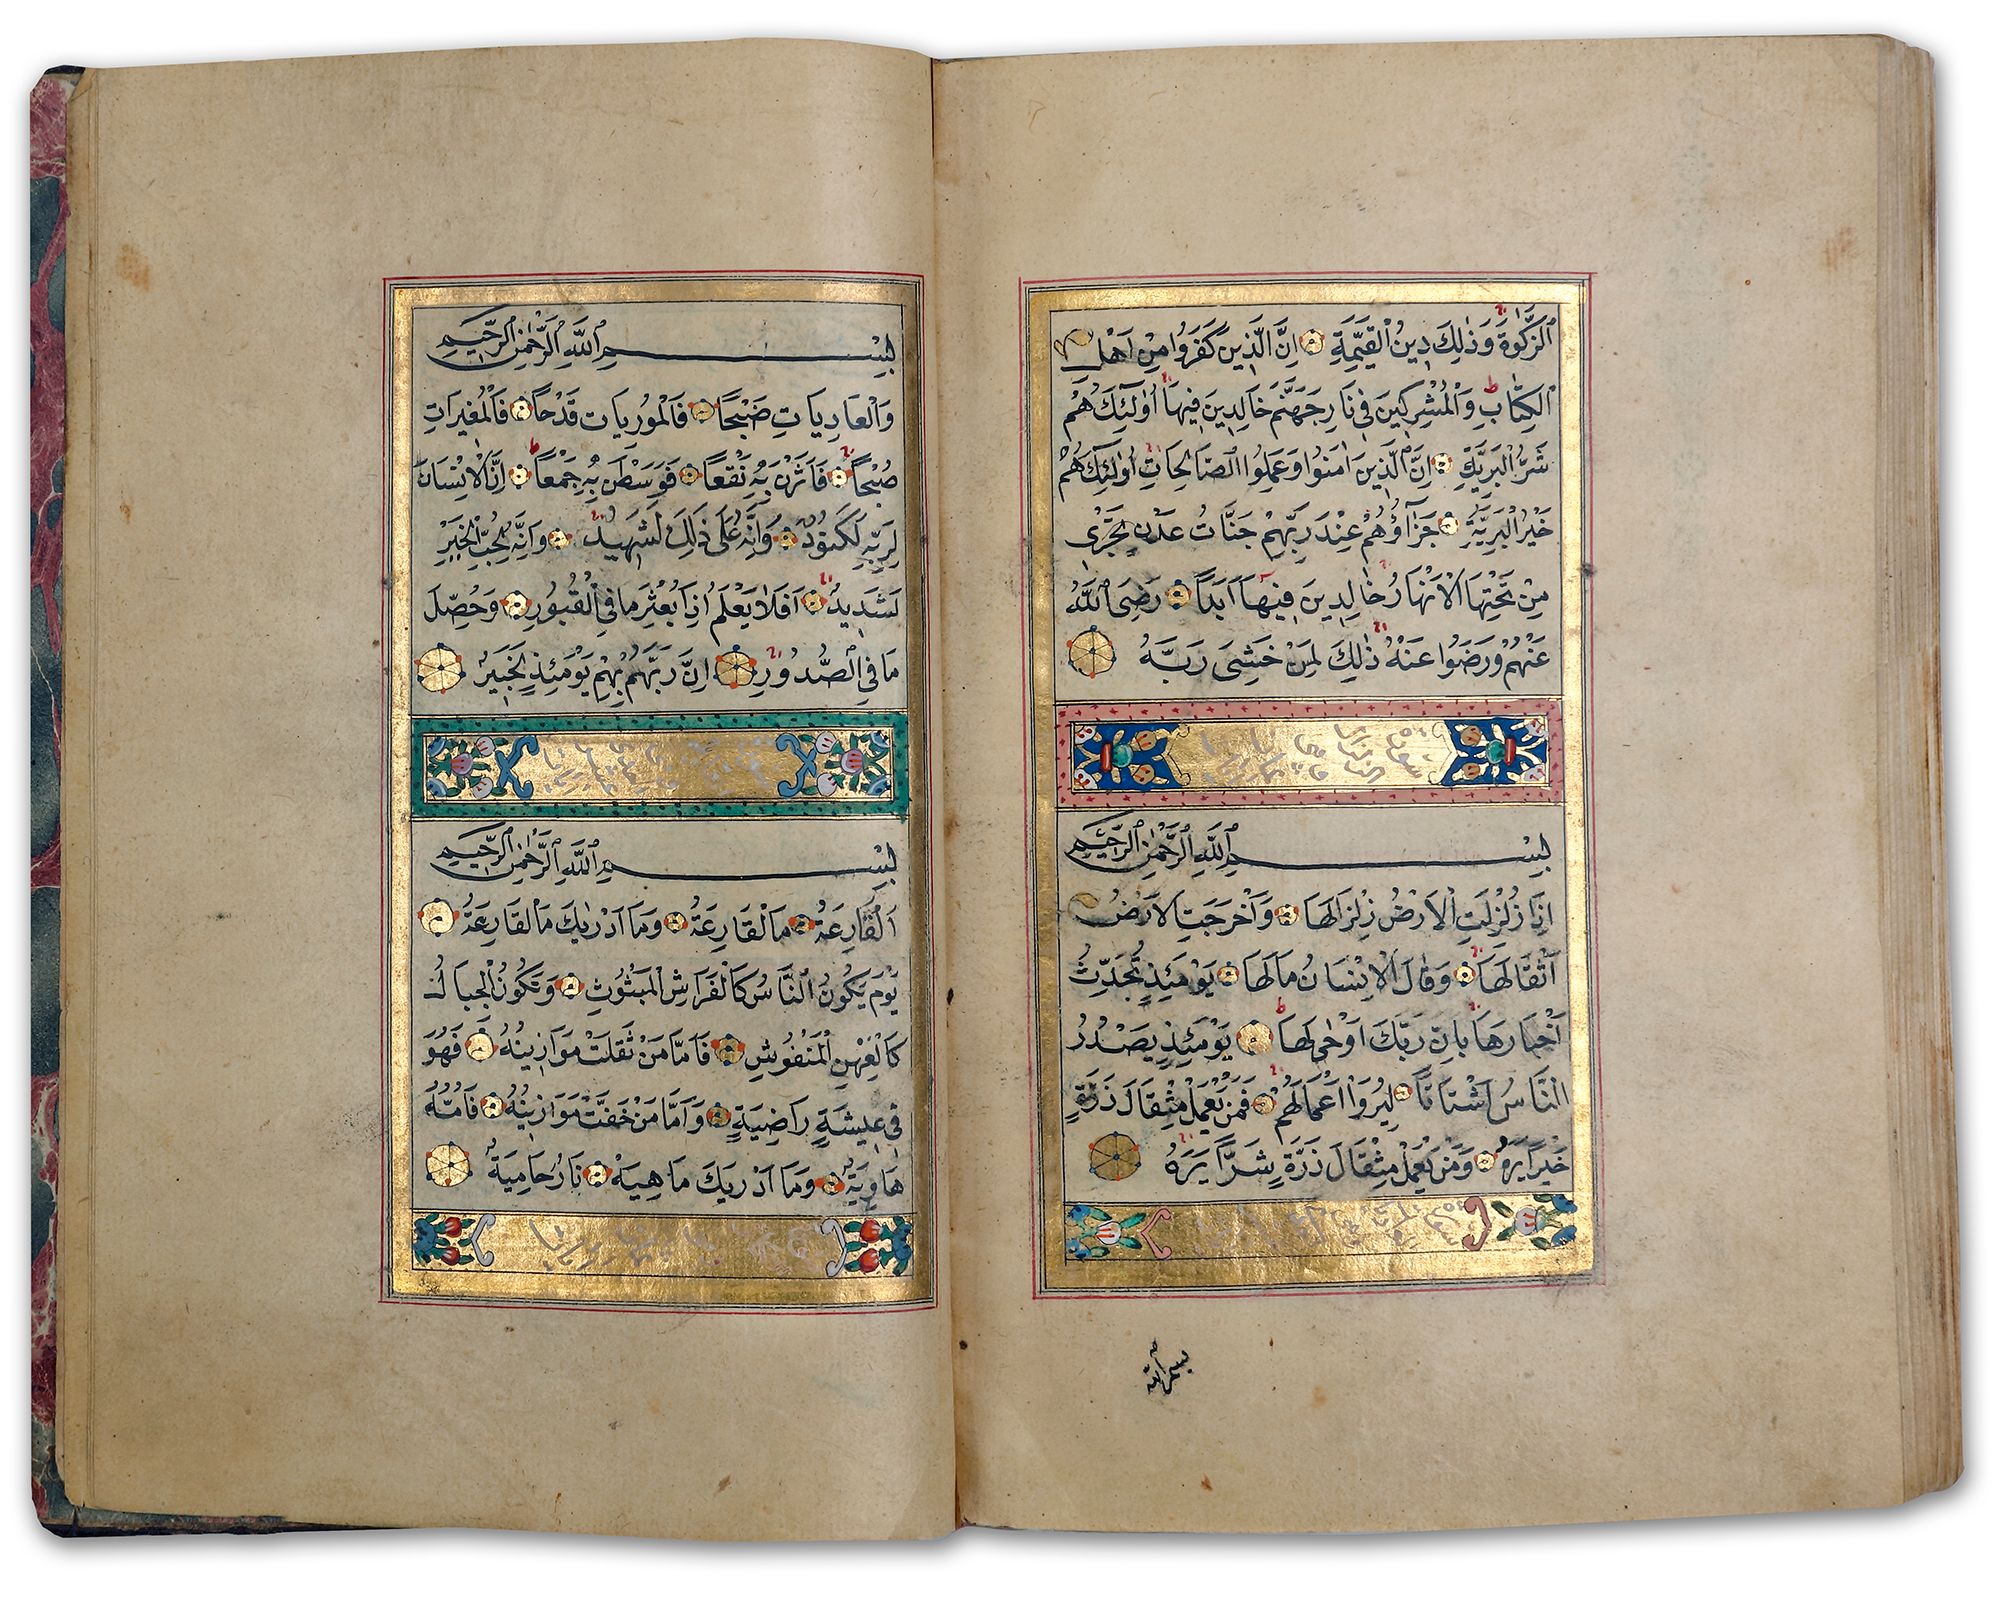 ٱلزَّكٰوةَ وَذٰلِكَ دِينُ الْقَيِّمَةِ اِنَّ الَّذِينَ كَفَرُوا مِنْ اَهْلِ
الْكِتَابِ وَالْمُشْرِكِينَ فِي نَارِ جَهَنَّمَ خَالِدِينَ فِيهَا اُولٰئِكَ هُمْ
شَرُّ الْبَرِيَّةِ اِنَّ الَّذِينَ اٰمَنُوا وَعَمِلُوا الصَّالِحَاتِ اُولٰئِكَ هُمْ
خَيْرُ الْبَرِيَّةِ جَزَآؤُهُمْ عِنْدَ رَبِّهِمْ جَنَّاتُ عَدْنٍ تَجْرِي
مِنْ تَحْتِهَا الْاَنْهَارُ خَالِدِينَ فِيهَا اَبَدًا رَضِيَ اللّٰهُ
عَنْهُمْ وَرَضُوا عَنْهُ ذٰلِكَ لِمَنْ خَشِيَ رَبَّهُ
سورة الزلزال
بِسْمِ اللّٰهِ الرَّحْمٰنِ الرَّحِيمِ
اِذَا زُلْزِلَتِ الْاَرْضُ زِلْزَالَهَا وَاَخْرَجَتِ الْاَرْضُ
اَثْقَالَهَا وَقَالَ الْاِنْسَانُ مَا لَهَا يَوْمَئِذٍ تُحَدِّثُ
اَخْبَارَهَا بِاَنَّ رَبَّكَ اَوْحٰى لَهَا يَوْمَئِذٍ يَصْدُرُ
النَّاسُ اَشْتَاتًا لِيُرَوْا اَعْمَالَهُمْ فَمَنْ يَعْمَلْ مِثْقَالَ ذَرَّةٍ
خَيْرًا يَرَهُ وَمَنْ يَعْمَلْ مِثْقَالَ ذَرَّةٍ شَرًّا يَرَهُ
سورة
بسم الله
بِسْمِ اللّٰهِ الرَّحْمٰنِ الرَّحِيمِ
وَالْعَادِيَاتِ ضَبْحًا فَالْمُورِيَاتِ قَدْحًا فَالْمُغِيرَاتِ
صُبْحًا فَاَثَرْنَ بِهِ نَقْعًا فَوَسَطْنَ بِهِ جَمْعًا اِنَّ الْاِنْسَانَ
لِرَبِّهِ لَكَنُودٌ وَاِنَّهُ عَلٰى ذٰلِكَ لَشَهِيدٌ وَاِنَّهُ لِحُبِّ الْخَيْرِ
لَشَدِيدٌ اَفَلَا يَعْلَمُ اِذَا بُعْثِرَ مَا فِي الْقُبُورِ وَحُصِّلَ
مَا فِي الصُّدُورِ اِنَّ رَبَّهُمْ بِهِمْ يَوْمَئِذٍ لَخَبِيرٌ
بِسْمِ اللّٰهِ الرَّحْمٰنِ الرَّحِيمِ
اَلْقَارِعَةُ مَا الْقَارِعَةُ وَمَا اَدْرٰيكَ مَا الْقَارِعَةُ
يَوْمَ يَكُونُ النَّاسُ كَالْفَرَاشِ الْمَبْثُوثِ وَتَكُونُ الْجِبَالُ
كَالْعِهْنِ الْمَنْفُوشِ فَاَمَّا مَنْ ثَقُلَتْ مَوَازِينُهُ فَهُوَ
فِي عِيشَةٍ رَاضِيَةٍ وَاَمَّا مَنْ خَفَّتْ مَوَازِينُهُ فَاُمُّهُ
هَاوِيَةٌ وَمَا اَدْرٰيكَ مَا هِيَهْ نَارٌ حَامِيَةٌ